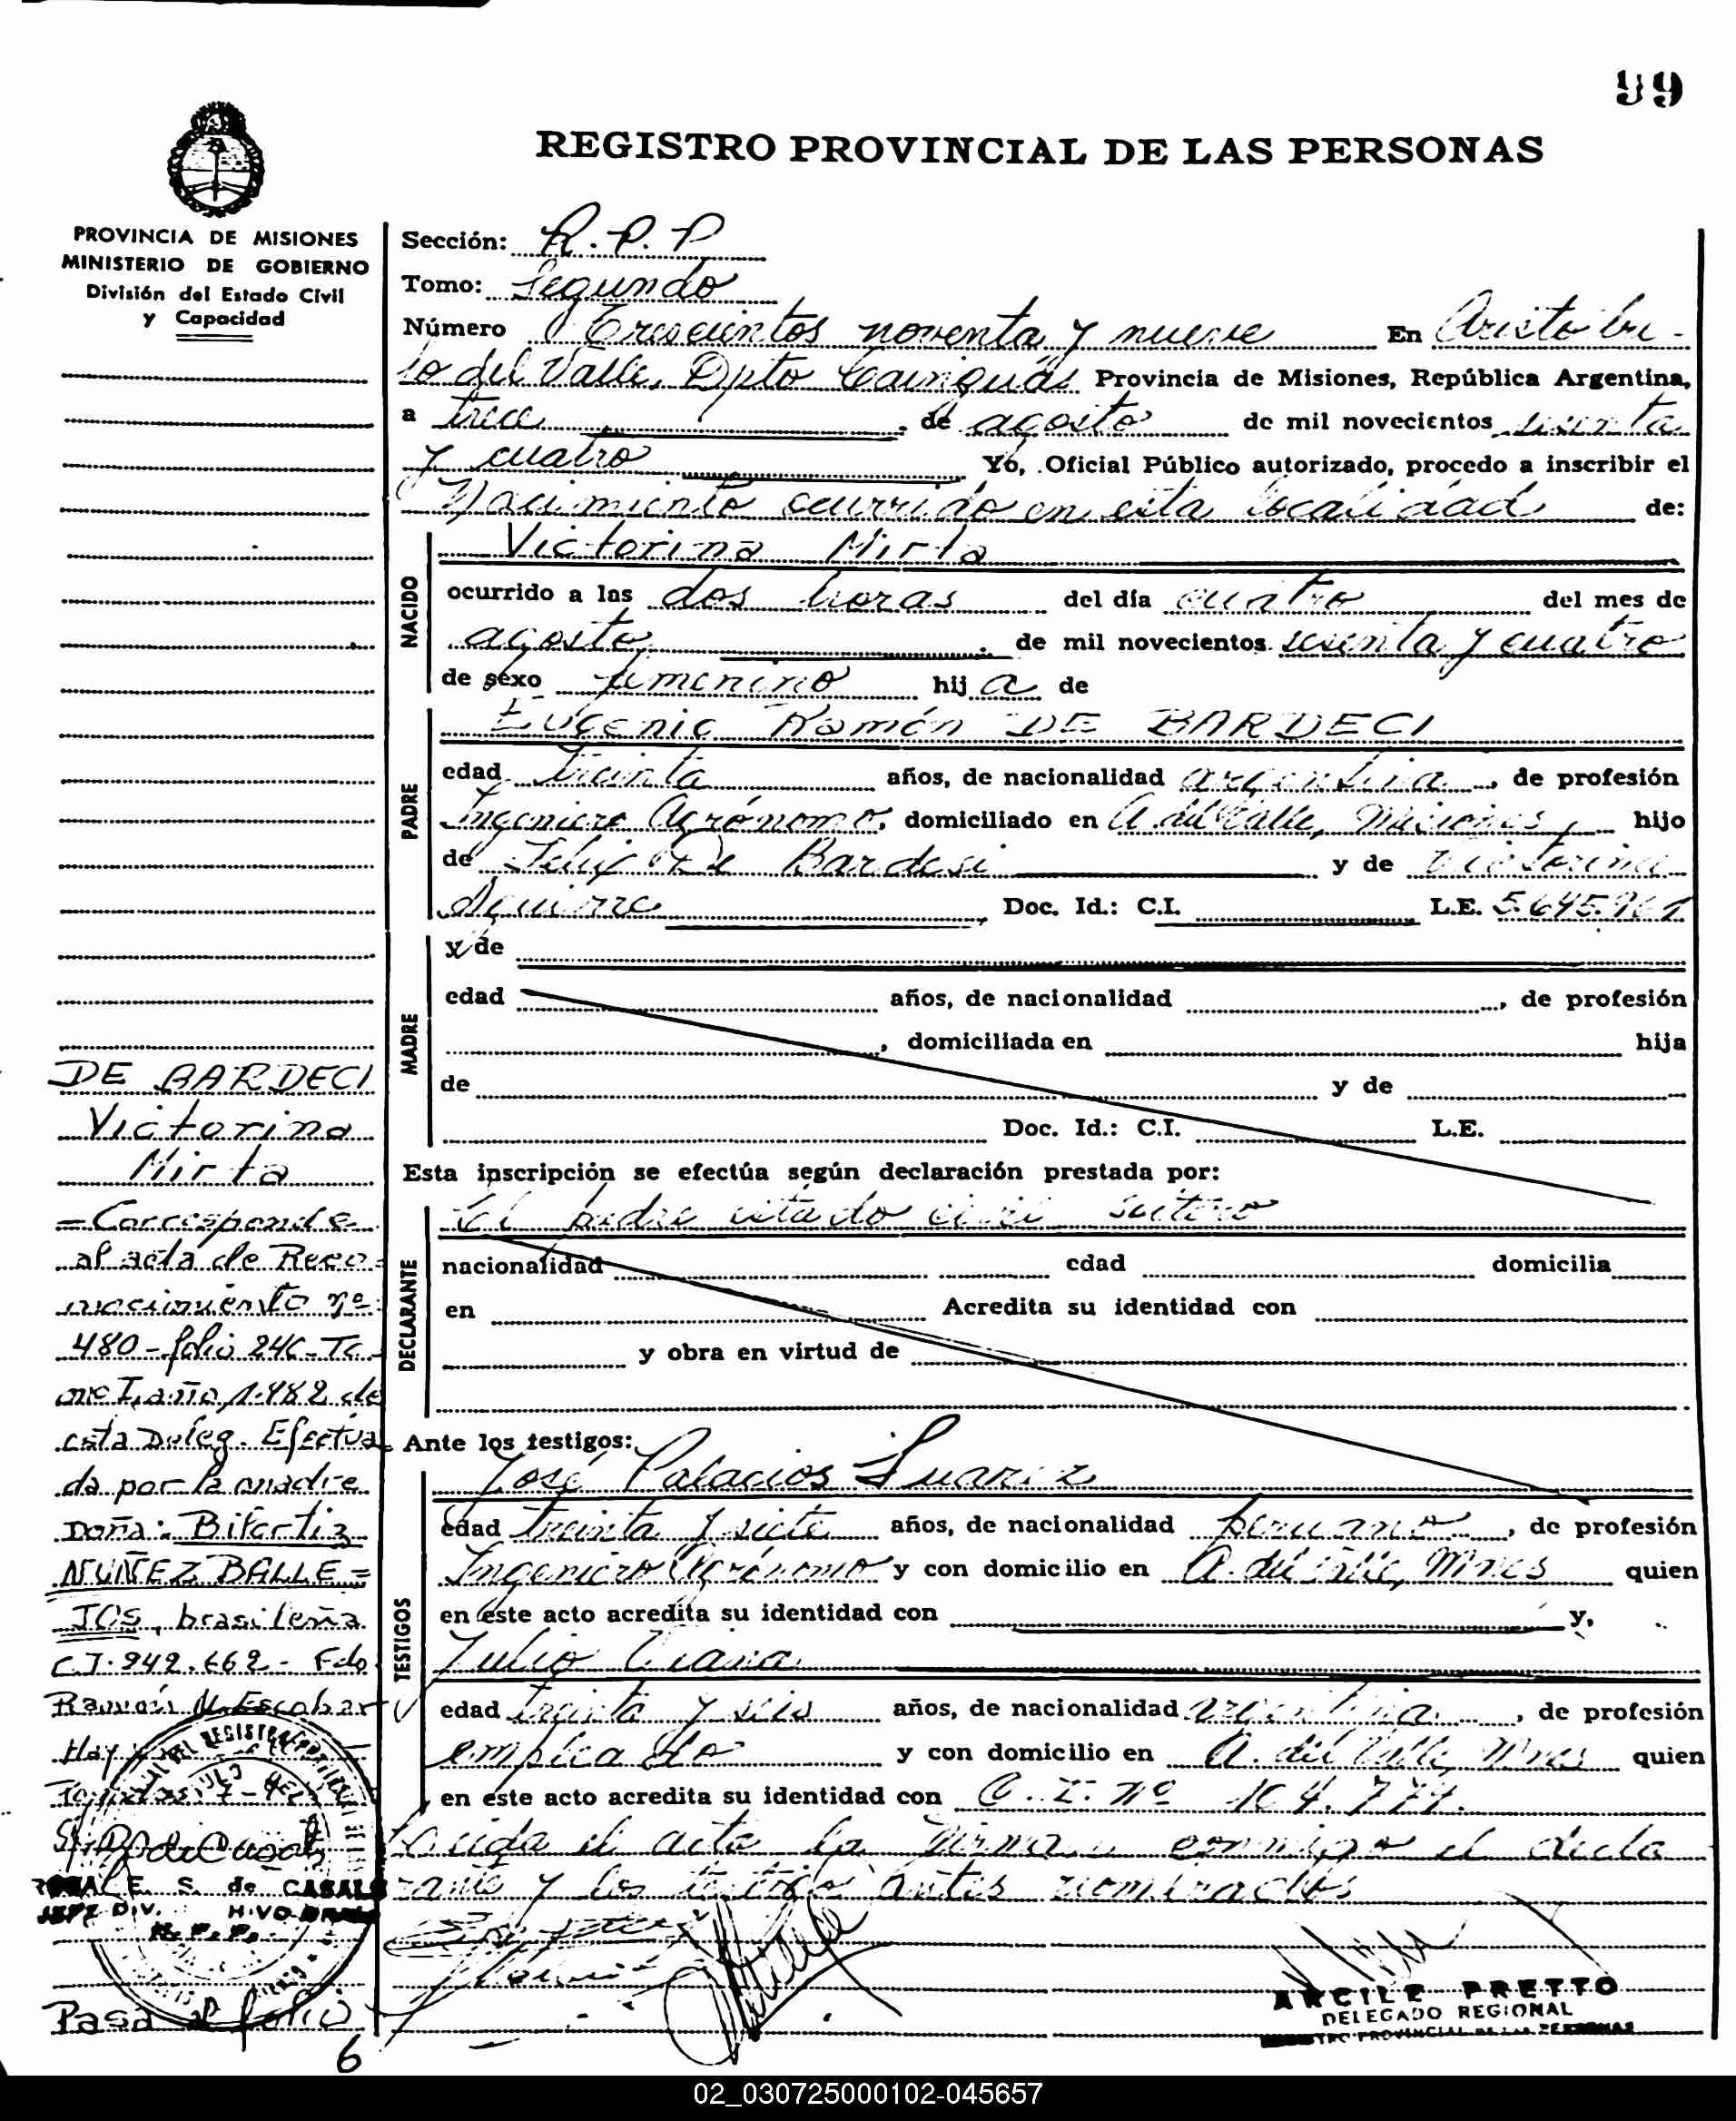 99
REGISTRO PROVINCIAL DE LAS PERSONAS
PROVINCIA DE MISIONES
MINISTERIO DE GOBIERNO
División del Estado Civil
y Capacidad
Sección: R.P.P
Tomo: Segundo
Número Trescientos noventa y nueve En Aristobu-
lo del Valle, Dpto Cainguás Provincia de Misiones, República Argentina,
a trece de agosto de mil novecientos sesenta
y cuatro Yo, Oficial Público autorizado, procedo a inscribir el
Nacimiento ocurrido en esta localidad de:
NACIDO
Victorina Mirta
ocurrido a las dos horas del día cuatro del mes de
agosto de mil novecientos sesenta y cuatro
de sexo femenino hija de
PADRE
Eugenio Ramón DE BARDECI
edad treinta años, de nacionalidad argentina, de profesión
Ingeniero Agrónomo, domiciliado en A. del Valle, Misiones, hijo
de Felix De Bardesi y de Victorina
Aguirre Doc. Id.: C.I. L.E. 5.645.961
MADRE
y de
edad años, de nacionalidad , de profesión
, domiciliada en hija
de y de
Doc. Id.: C.I. L.E.
Esta inscripción se efectúa según declaración prestada por:
DECLARANTE
El padre estado civil soltero
nacionalidad edad domicilia
en Acredita su identidad con
y obra en virtud de
Ante los testigos:
TESTIGOS
José Palacios Suarez
edad treinta y siete años, de nacionalidad peruana, de profesión
Ingeniero Agrónomo y con domicilio en A. del Valle, Mnes quien
en este acto acredita su identidad con y,
Julio Viana
edad treinta y seis años, de nacionalidad argentina, de profesión
empleado y con domicilio en A. del Valle, Mnes quien
en este acto acredita su identidad con C.I. Nº 104.774.
Leida el acta la firman conmigo el decla
rante y los testigos antes nombrados
ARCILE PRETTO
DELEGADO REGIONAL
DE BARDECI
Victorina
Mirta
=Corresponde
al acta de Reco=
nocimiento nº
480-folio 246-To
mo I, año 1.982 de
esta Deleg. Efectua
da por la madre
Doña: Bitertiz
NUÑEZ BALLE=
JOS, brasileña
C.I. 949.662 - Fdo
Ramón Escobar
Hay
E. S. de CASALS
JEFE DIV.
R.P.P.
Pasa al folio
6
02_030725000102-045657